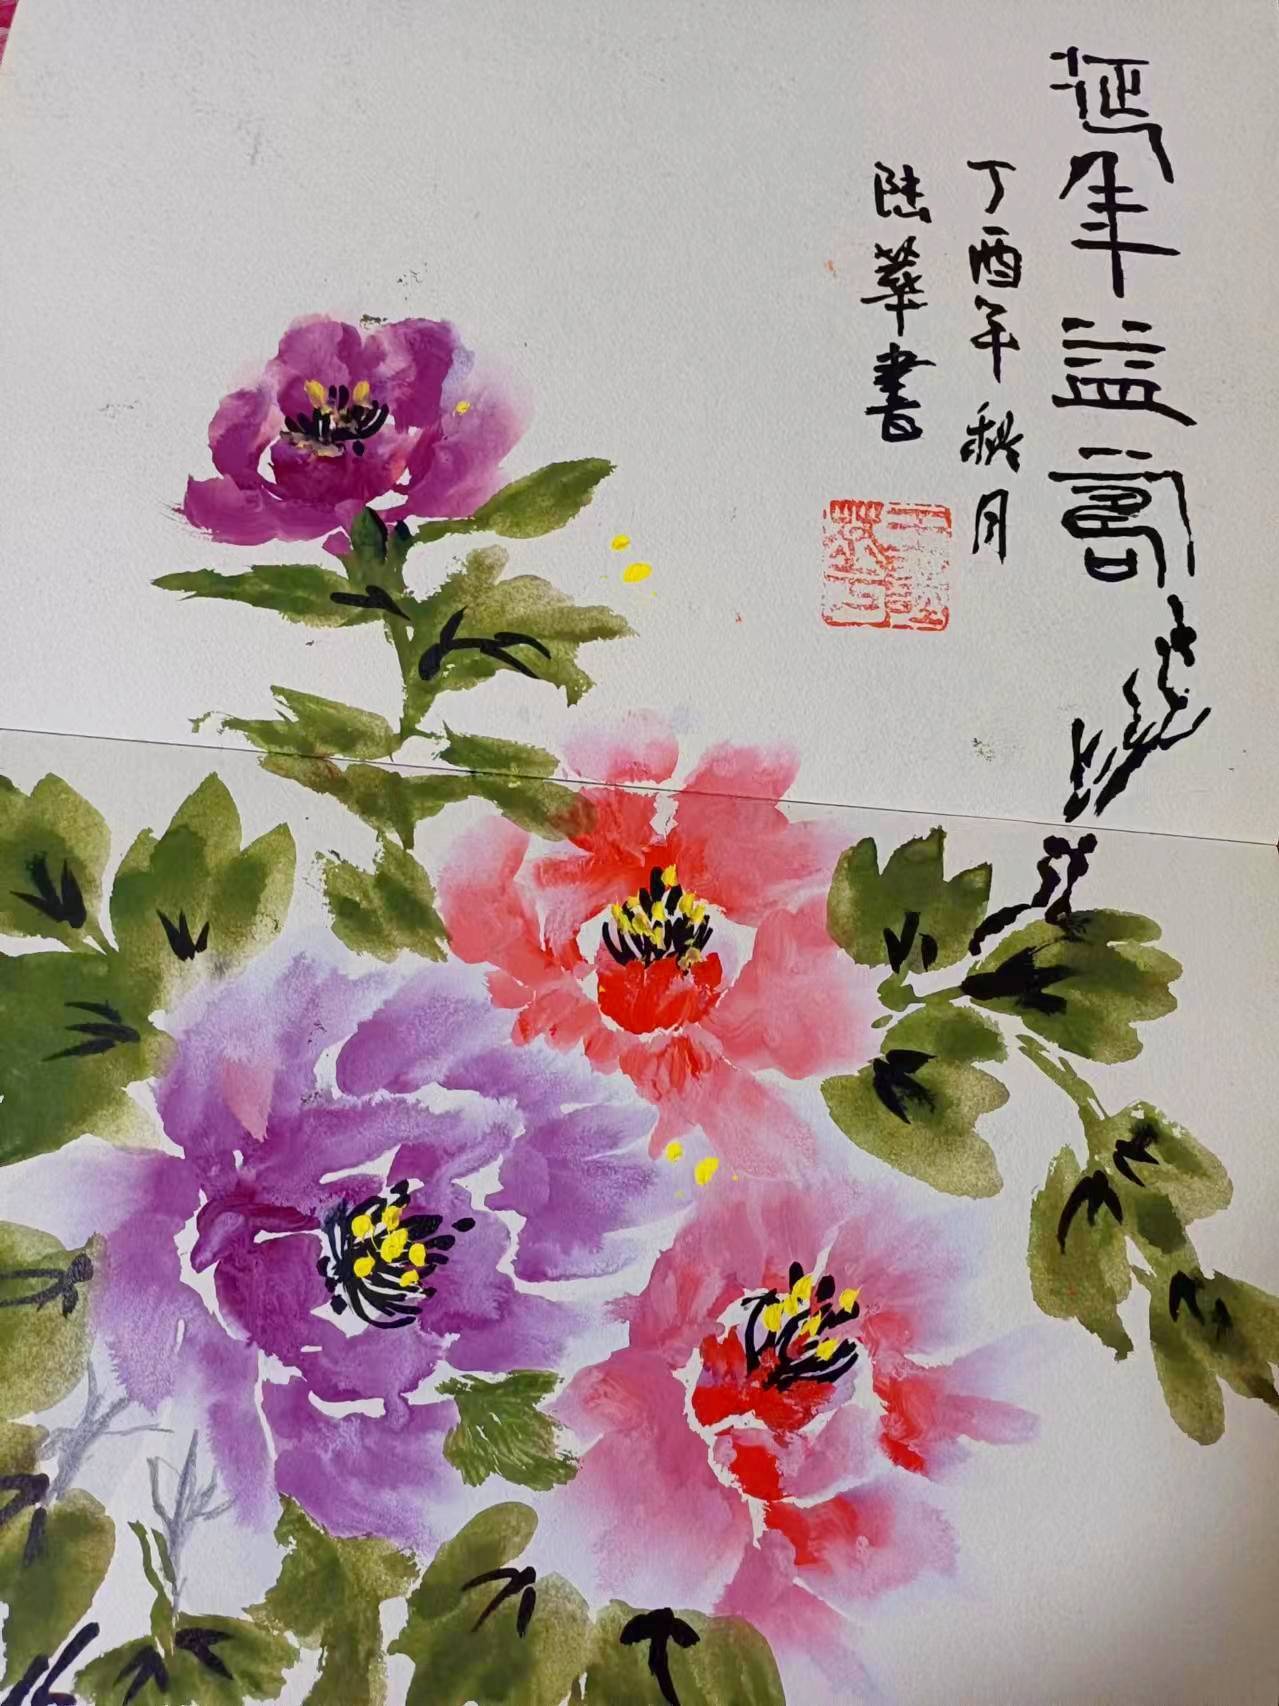 延年益寿
丁酉年秋月
陆華書